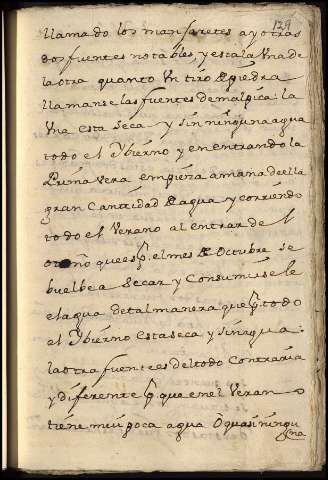 129
llamado los manſaretes ay otras
dos fuentes notables, y esta la Vna de
la otra quanto Vn tiro de piedra
llamanse las fuentes de malpica: la
Vna esta seca y sin ninguna agua
todo el Ybierno y en entrando la
Prima Vera empieza a manar de ella
gran Cantidad de agua y corriendo
todo el Verano al entrar de l
otoño que es el mes de Octubre se
buelbe a Secar y Consumirse le
el agua de tal manera que todo
el Ybierno esta seca y sin agua:
la otra fuente es del todo Contraria
y diferente que en el Verano
tiene mui poca agua O quasi ningu
na